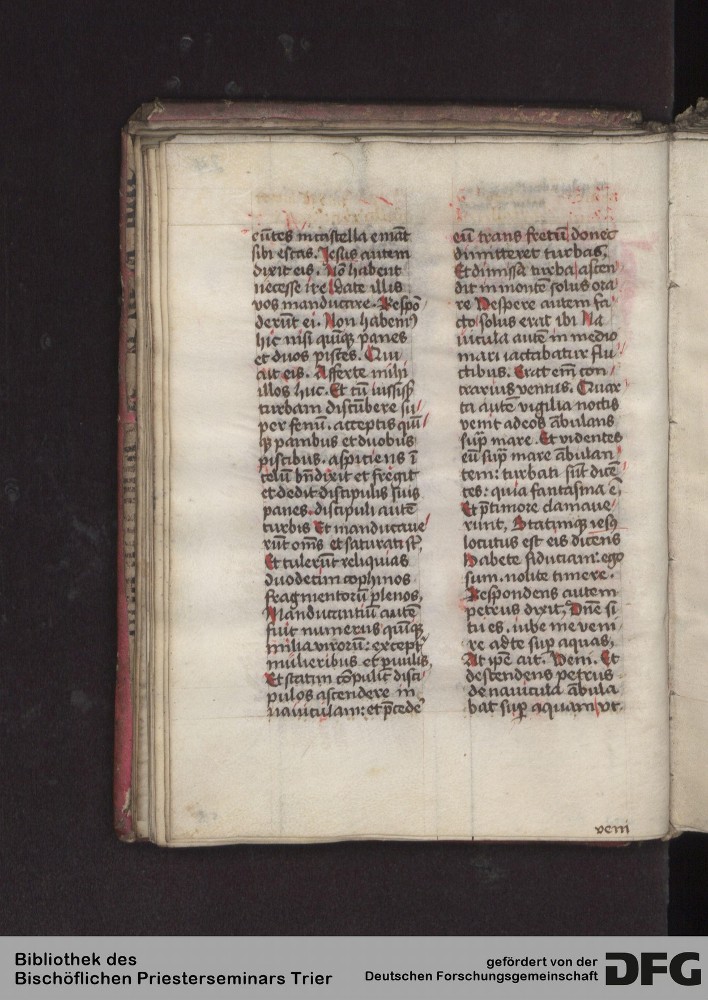 eūtes in castella emāt
sibi escas. Jesus autem
dixit eis. Nō habent
necesse ire. date illis
vos manducare. Respō
derūt ei. Non habem⁹
hic nisi quīqȝ panes
et duos pisces. Qui
ait eis. Afferte mihi
illos huc. Et cū iussiss⁊
turbam discūbere su
per fenū. acceptis quī
qȝ panibus et duobus
piscibus. aspiciens ī
celū bn̄dixit et fregit
et dedit discipulis suis
panes. discipuli autē
turbis Et manducaue
rūt om̄s et saturati st̄,
Et tulerūt reliquias
duodecim cophinos
fragmentorū plenos,
Manducantiū autē
fuit numerus quīqȝ
milia virorū: except⁹
mulieribus et puulis,
Et statim cōpulit disci
pulos ascendere in
nauiculam: et p̄cede
eū trans fretū donec
dimitteret turbas,
Et dimissa turba ascen
dit in monte solus ora
re Vespere autem fa
cto solus erat ibi Na
uicula autē in medio
mari iactabatur flu
ctibus. Erat em̄ con
trarius ventus. Quar
ta autē vigilia noctis
venit ad eos ābulans
supͣ mare. Et videntes
eū supͣ mare ābulan
tem: turbati sūt dicē
tes: quia fantasma ē,
Et p̄ timore clamaue
runt, Statimqȝ iesꝯ
locutus est eis dicens
Habete fiduciam: ego
sum. nolite timere.
Respondens autem
petrus dixit, Dn̄e si
tu es. iube me veni
re ad te supͣ aquas,
At ip̄e ait. Veni. Et
descendens petrus
de nauicula ābula
bat supͣ aquam vt
veni
Bibliothek des
Bischöflichen Priesterseminars Trier
gefördert von der
Deutschen Forschungsgemeinschaft
DFG